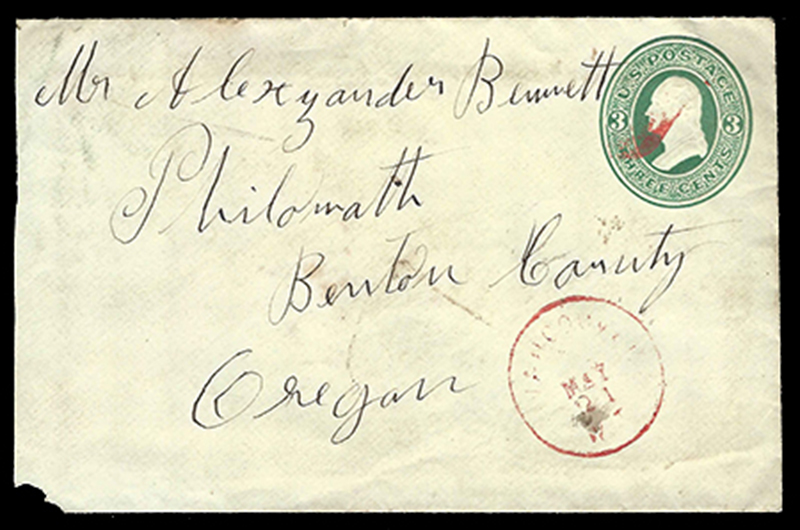 Mr Alexzander Bennett
Philomath
Benton County
Oregan
U.S. POSTAGE
3 3
THREE CENTS
MAY
21